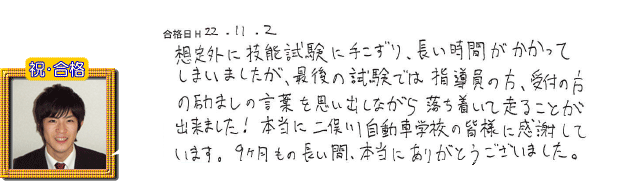 合格日 H22.11.2
祝・合格
想定外に技能試験に手こずり、長い時間がかかって
しまいましたが、最後の試験では指導員の方、受付の方
の励ましの言葉を思い出しながら落ち着いて走ることが
出来ました！本当に二俣川自動車学校の皆様に感謝して
います。9ヶ月もの長い間、本当にありがとうございました。